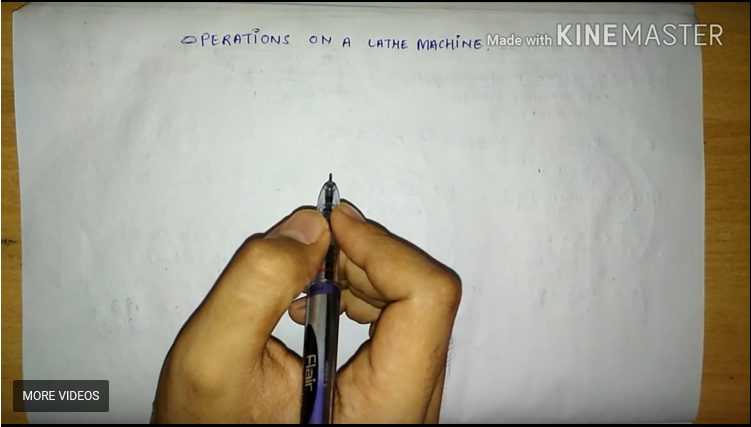 OPERATIONS ON A LATHE MACHINE.
Made with KINEMASTER
Flair
MORE VIDEOS